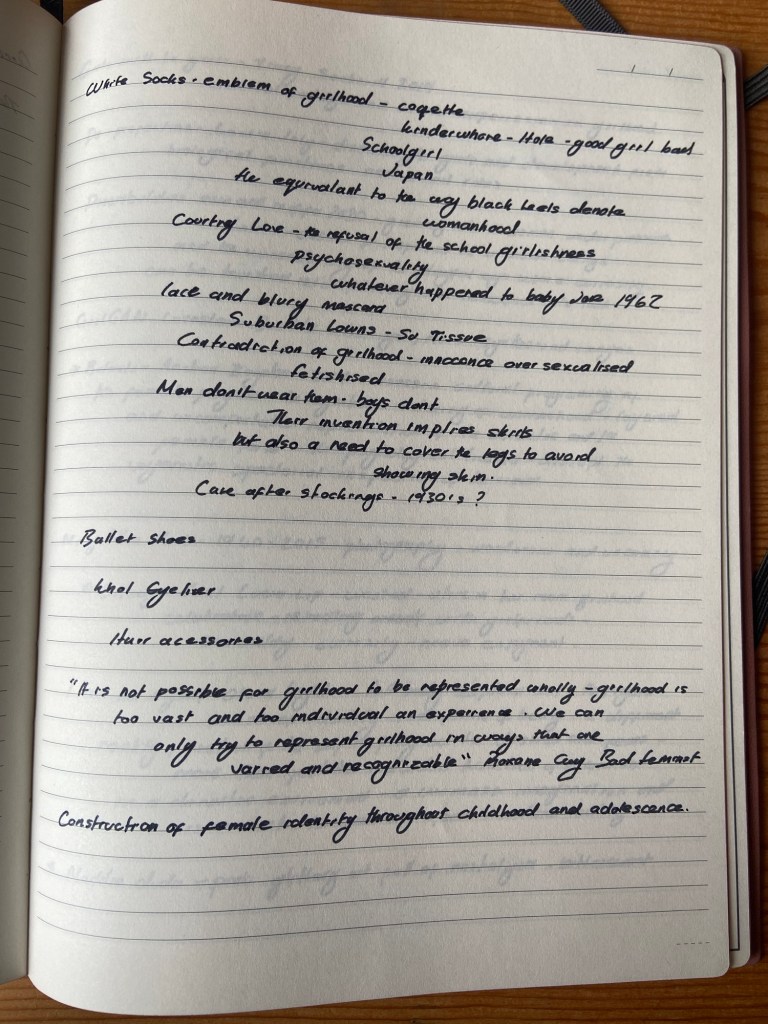 White Socks · emblem of girlhood - coqette
kinderwhore - Hole - good girl bad
Schoolgirl
Japan
the equivalant to the way black heels denote
womanhood
Courtney Love - the refusal of the school girlishness
psychosexuality
whatever happened to baby Jane 1962
lace and blury mascara
Suburban Lawns - Su Tissue
Contradiction of girlhood - innocence over sexualised
fetishised
Men don't wear them · boys dont
Their invention implies skirts
but also a need to cover the legs to avoid
showing skin.
Came after stockings - 1930's ?
Ballet shoes
khol Eyeliner
Hair acessories
"It is not possible for girlhood to be represented wholly - girlhood is
too vast and too individual an experience . We can
only try to represent girlhood in ways that are
varied and recognizable" Roxane Gay Bad feminist
Construction of female identity throughout childhood and adolescence.